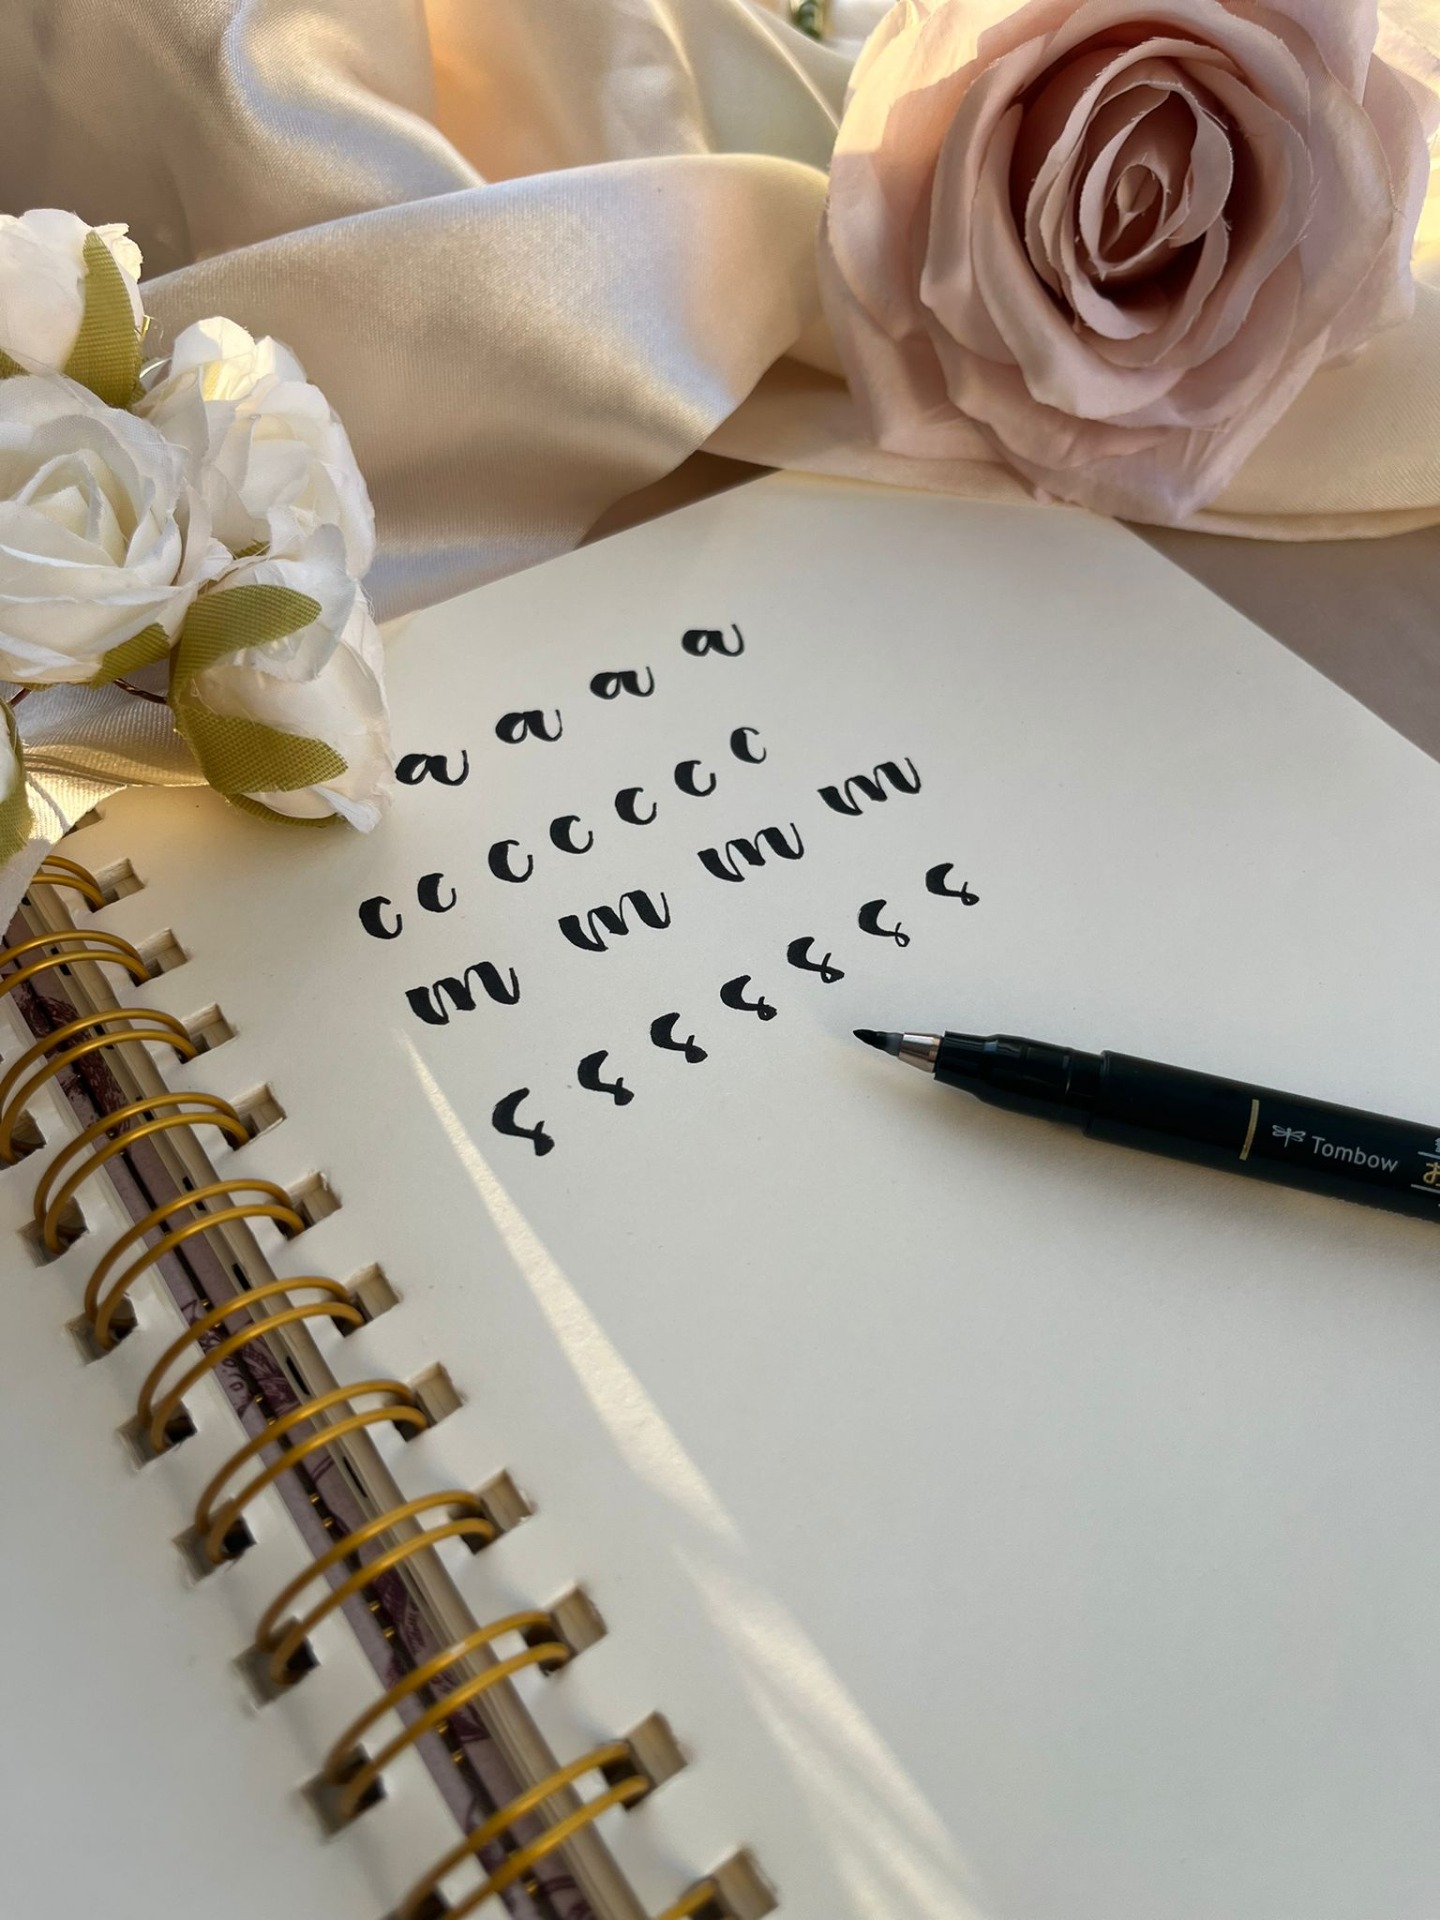 a a a a
c c c c c c c
m m m m
s s s s s s s
Tombow